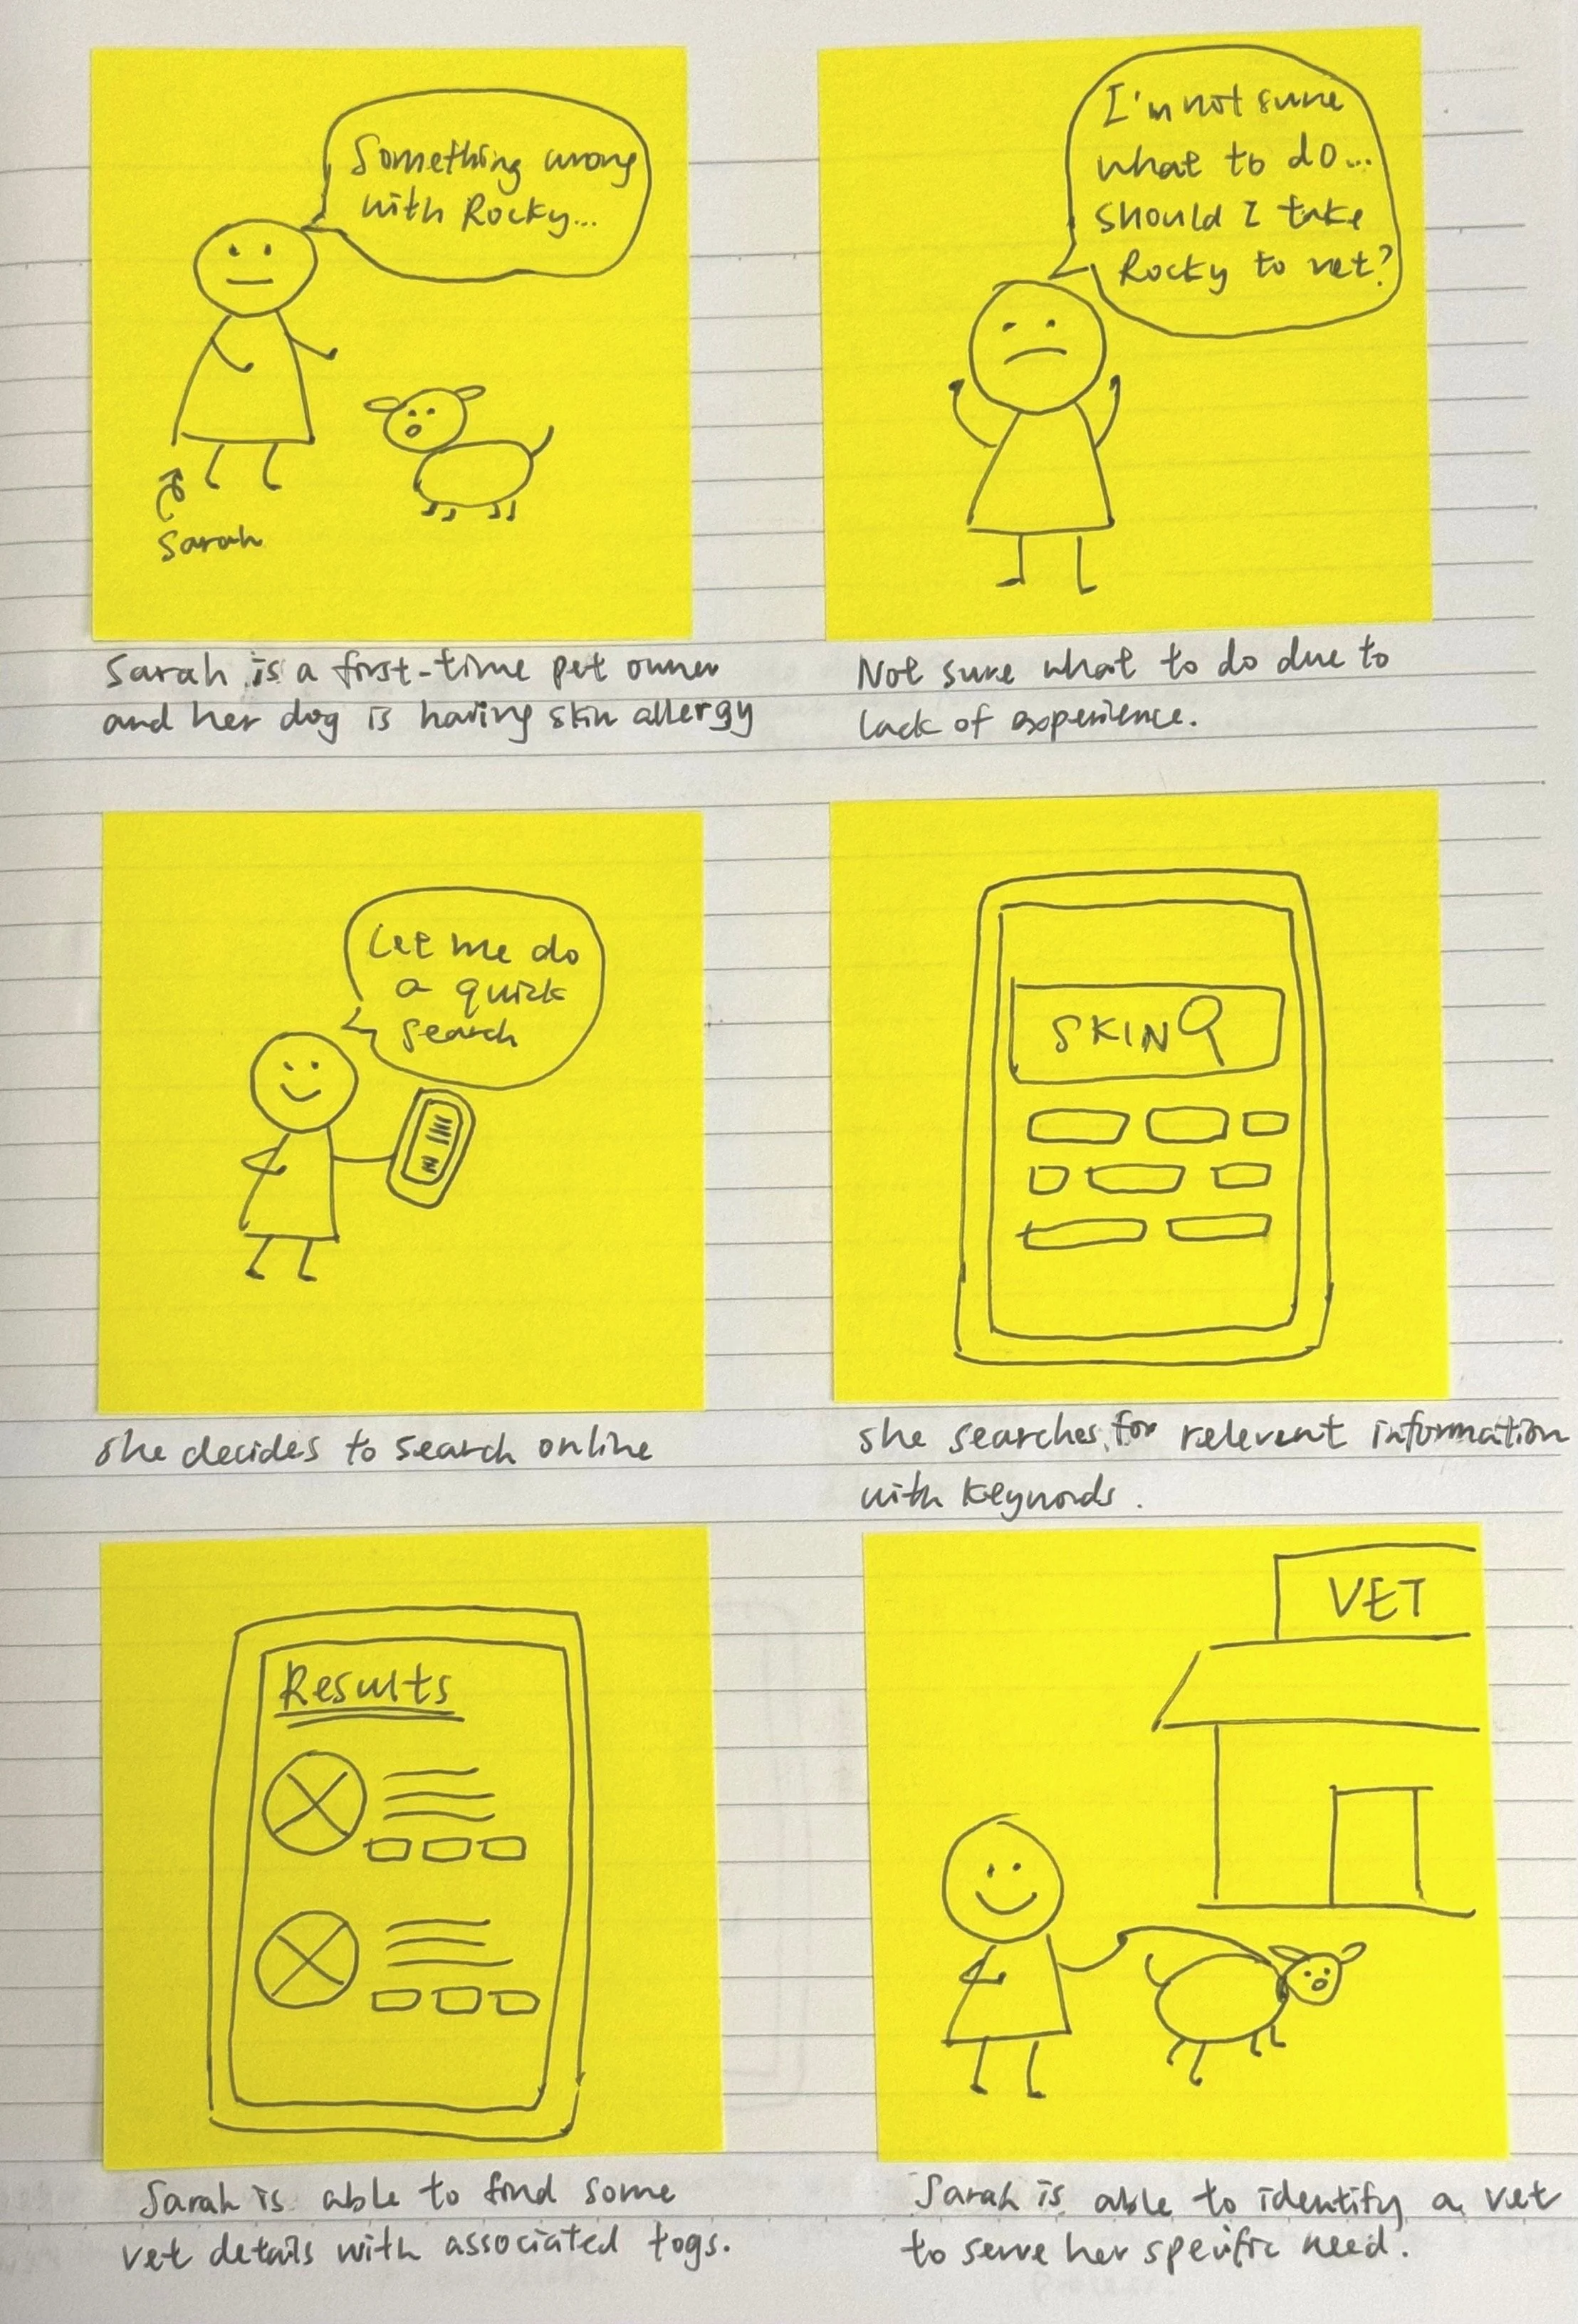 Something wrong
with Rocky...
Sarah
Sarah is a first-time pet owner
and her dog is having skin allergy
I'm not sure
what to do...
should I take
Rocky to vet?
Not sure what to do due to
lack of experience.
Let me do
a quick
search
she decides to search online
SKIN
she searches for relevent information
with keywords.
Results
Sarah is able to find some
vet details with associated togs.
VET
Sarah is able to identify a vet
to serve her specific need.